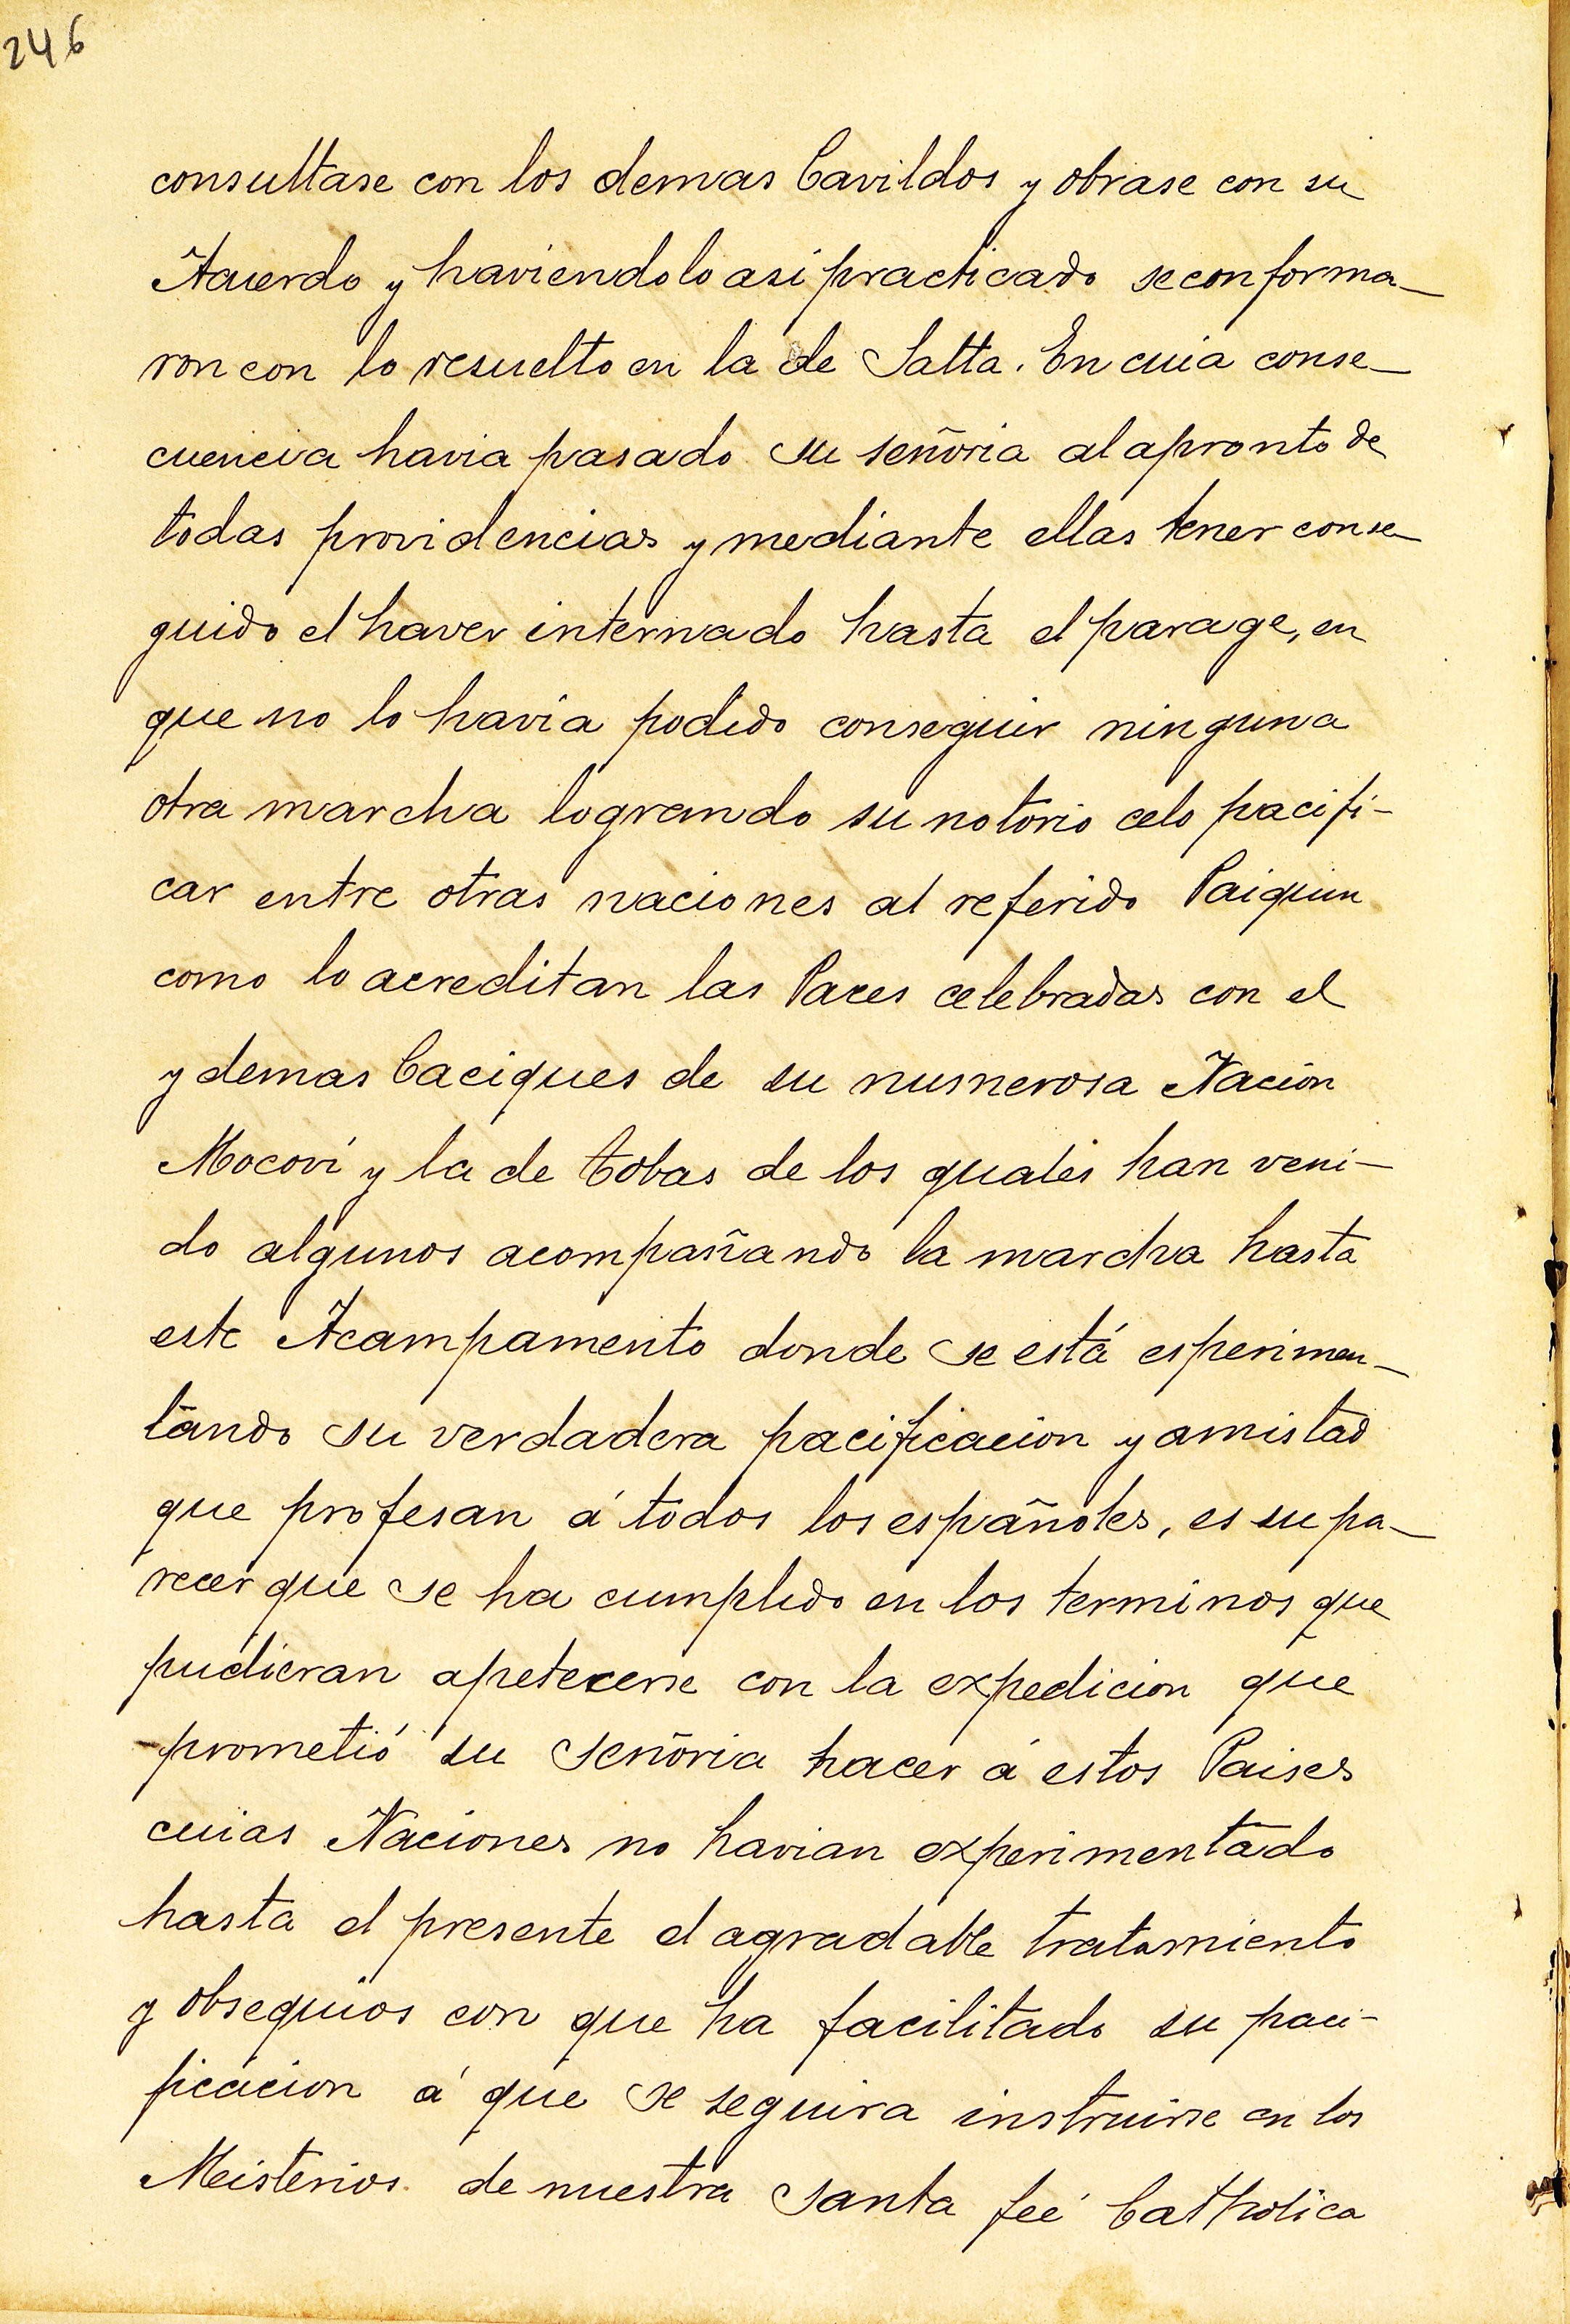 246
consultase con los demas Cavildos y obrase con su
Acuerdo y haviendolo asi practicado se conforma-
ron con lo resuelto en la de Salta. En cuia conse-
cuencia havia pasado su señoria al apronto de
todas providencias y mediante ellas tener conse-
guido el haver internado hasta el parage, en
que no lo havia podido conseguir ninguna
otra marcha logrando su notorio celo pacifi-
car entre otras naciones al referido Paiquin
como lo acreditan las Paces celebradas con el
y demas Caciques de su numerosa Nación
Mocoví y la de Tobas de los quales han veni-
do algunos acompañando la marcha hasta
este Acampamento donde se está esperimen-
tando su verdadera pacificacion y amistad
que profesan á todos los españoles, es su pa-
recer que se ha cumplido en los terminos que
pudieran apetecerse con la expedicion que
prometió su señoria hacer á estos Paises
cuias Naciones no havian experimentado
hasta el presente el agradable tratamiento
y obsequios con que ha facilitado su paci-
ficacion á que se seguira instruirse en los
Meisterios de nuestra santa feé Catholica